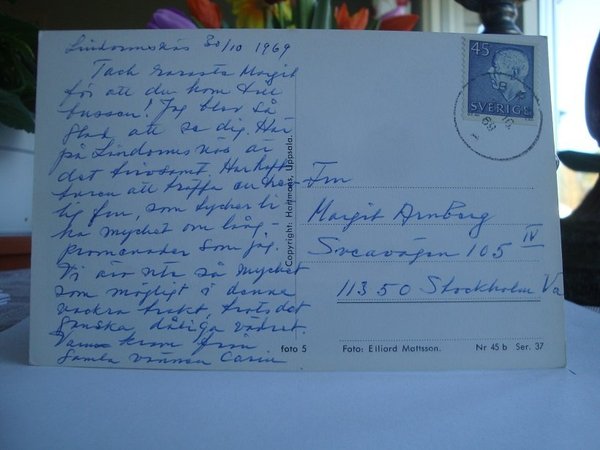 Lindormsnäs 30/10 1969
Tack Margit
för att du kom till
bussen! Jag blev så
glad, att se dig. Här
på Lindormsnäs är
det trivsamt. Har haft
turen att träffa en här-
lig fru, som tycker li-
ka mycket om lång-
promenader som jag.
Vi äro ute så mycket
som möjligt i denna
vackra trakt, trots det
ganska dåliga vädret.
Varm kram från
Gamla vännen Carin
Copyright: Hartmans, Uppsala.
45
SVERIGE
Fru
Margit Arnborg
Sveavägen 105 IV
113 50 Stockholm Va
foto 5
Foto: Elliord Mattsson.
Nr 45 b Ser. 37